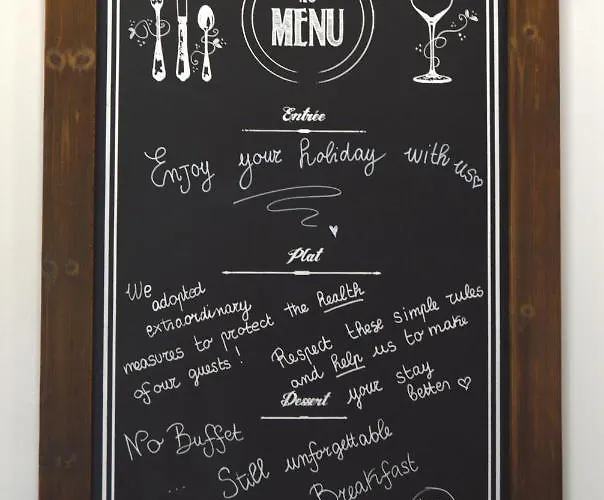 MENU
Entrée
Enjoy your holiday with us
Plat
We adopted
extraordinary
measures to protect the health
of our guests!
Respect these simple rules
and help us to make
your stay
better
Dessert
No Buffet
... Still unforgettable
Breakfast